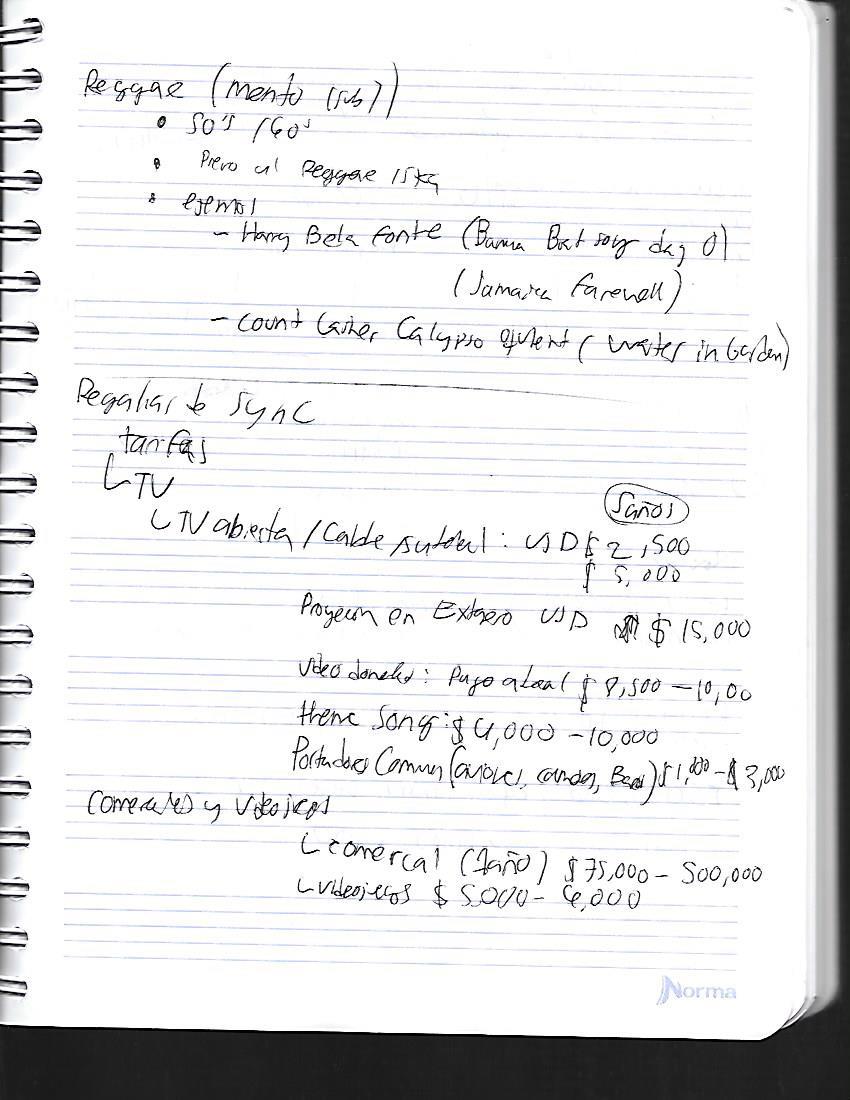 Reggae (mento (sub))
• 50's / 60s
• Previo al Reggae / Ska
• ejempl
- Harry Belafonte (Banana Boat song day O)
(Jamaica Farewell)
- Count Lasher Calypso (Water in Garden)
Regalias de Sync
tarifas
TV
TV abierta / Cable : USD $ 2,500
5 años
$ 5,000
en USD $ 15,000
: Pago $ 8,500 - 10,00
theme Song: $ 4,000 - 10,000
Portadores Comun (aviones, ) $ 1,000 - $ 3,000
Comerciales y Videojuegos
comercial (1 año) $ 75,000 - 500,000
videojuegos $ 5000 - 6,000
Norma